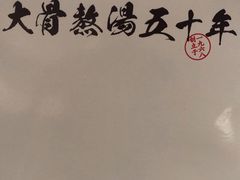 大骨熬湯五十年
創立于
一九六八